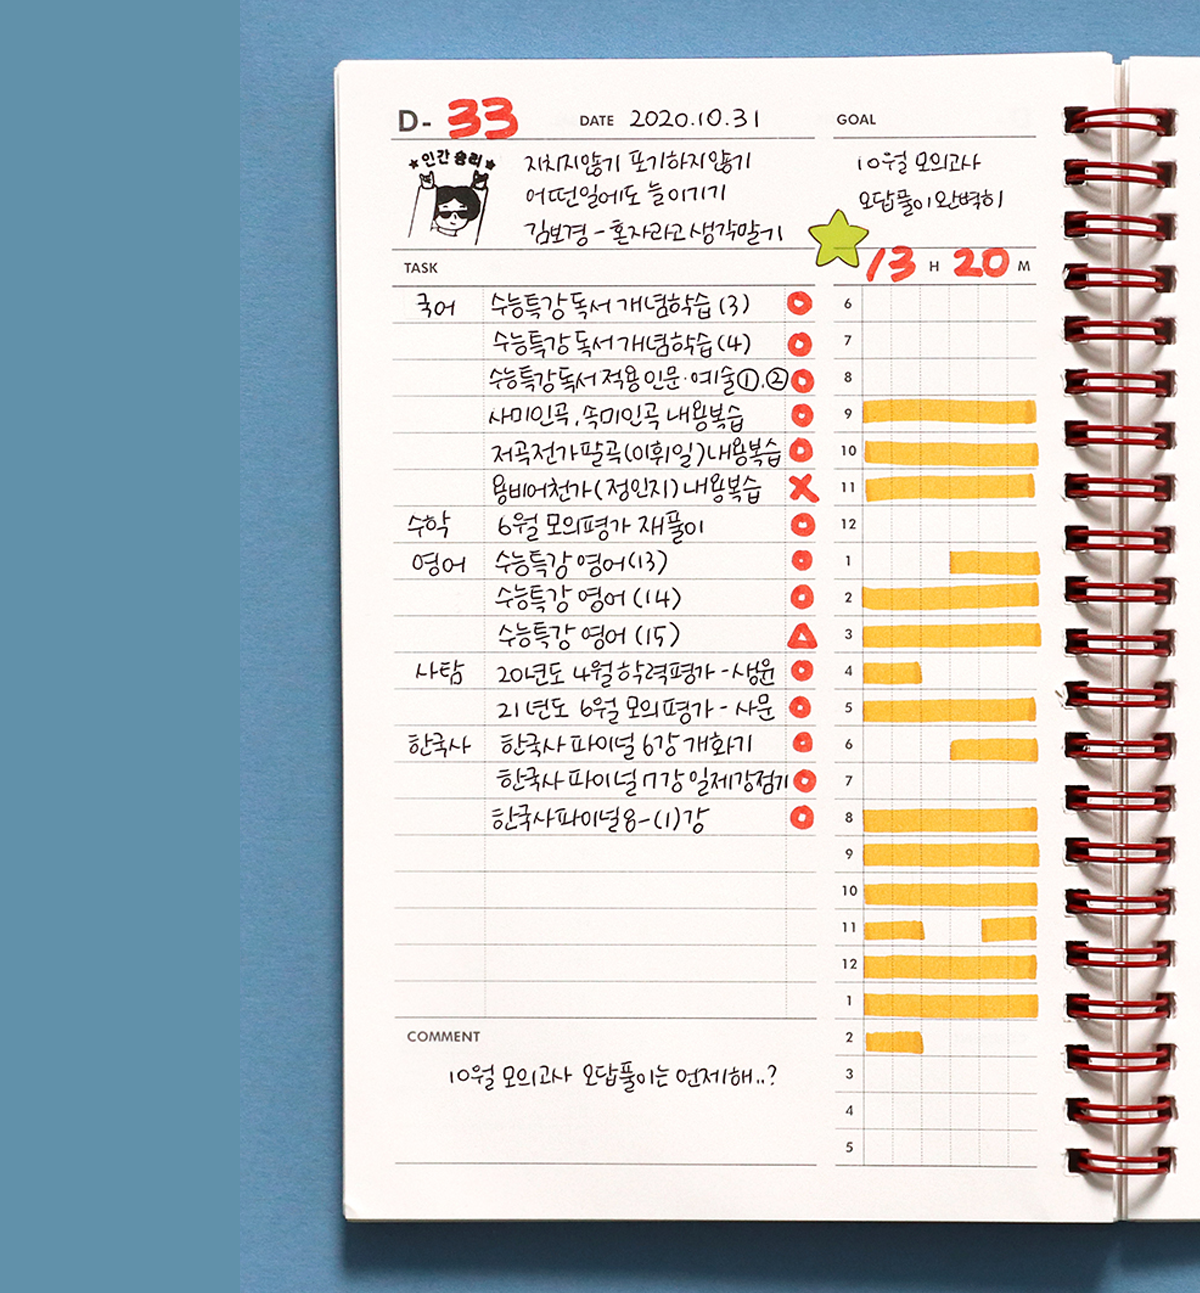 D- 33 DATE 2020.10.31
★인간 승리★
지치지않기 포기하지않기
어떤일에도 늘 이기기
김보경 - 혼자라고 생각말기
GOAL
10월 모의고사
오답풀이 완벽히
13 H 20 M
TASK
국어 수능특강 독서 개념학습 (3) O
수능특강 독서 개념학습 (4) O
수능특강 독서 적용 인문·예술①.② O
사미인곡, 속미인곡 내용복습 O
저곡전가팔곡(이휘일) 내용복습 O
용비어천가(정인지) 내용복습 X
수학 6월 모의평가 재풀이 O
영어 수능특강 영어(13) O
수능특강 영어 (14) O
수능특강 영어 (15) △
사탐 20년도 4월 학력평가 - 생윤 O
21년도 6월 모의평가 - 사문 O
한국사 한국사 파이널 6강 개화기 O
한국사 파이널 7강 일제강점기 O
한국사파이널8-(1)강 O
6
7
8
9
10
11
12
1
2
3
4
5
6
7
8
9
10
11
12
1
2
3
4
5
COMMENT
10월 모의고사 오답풀이는 언제해..?